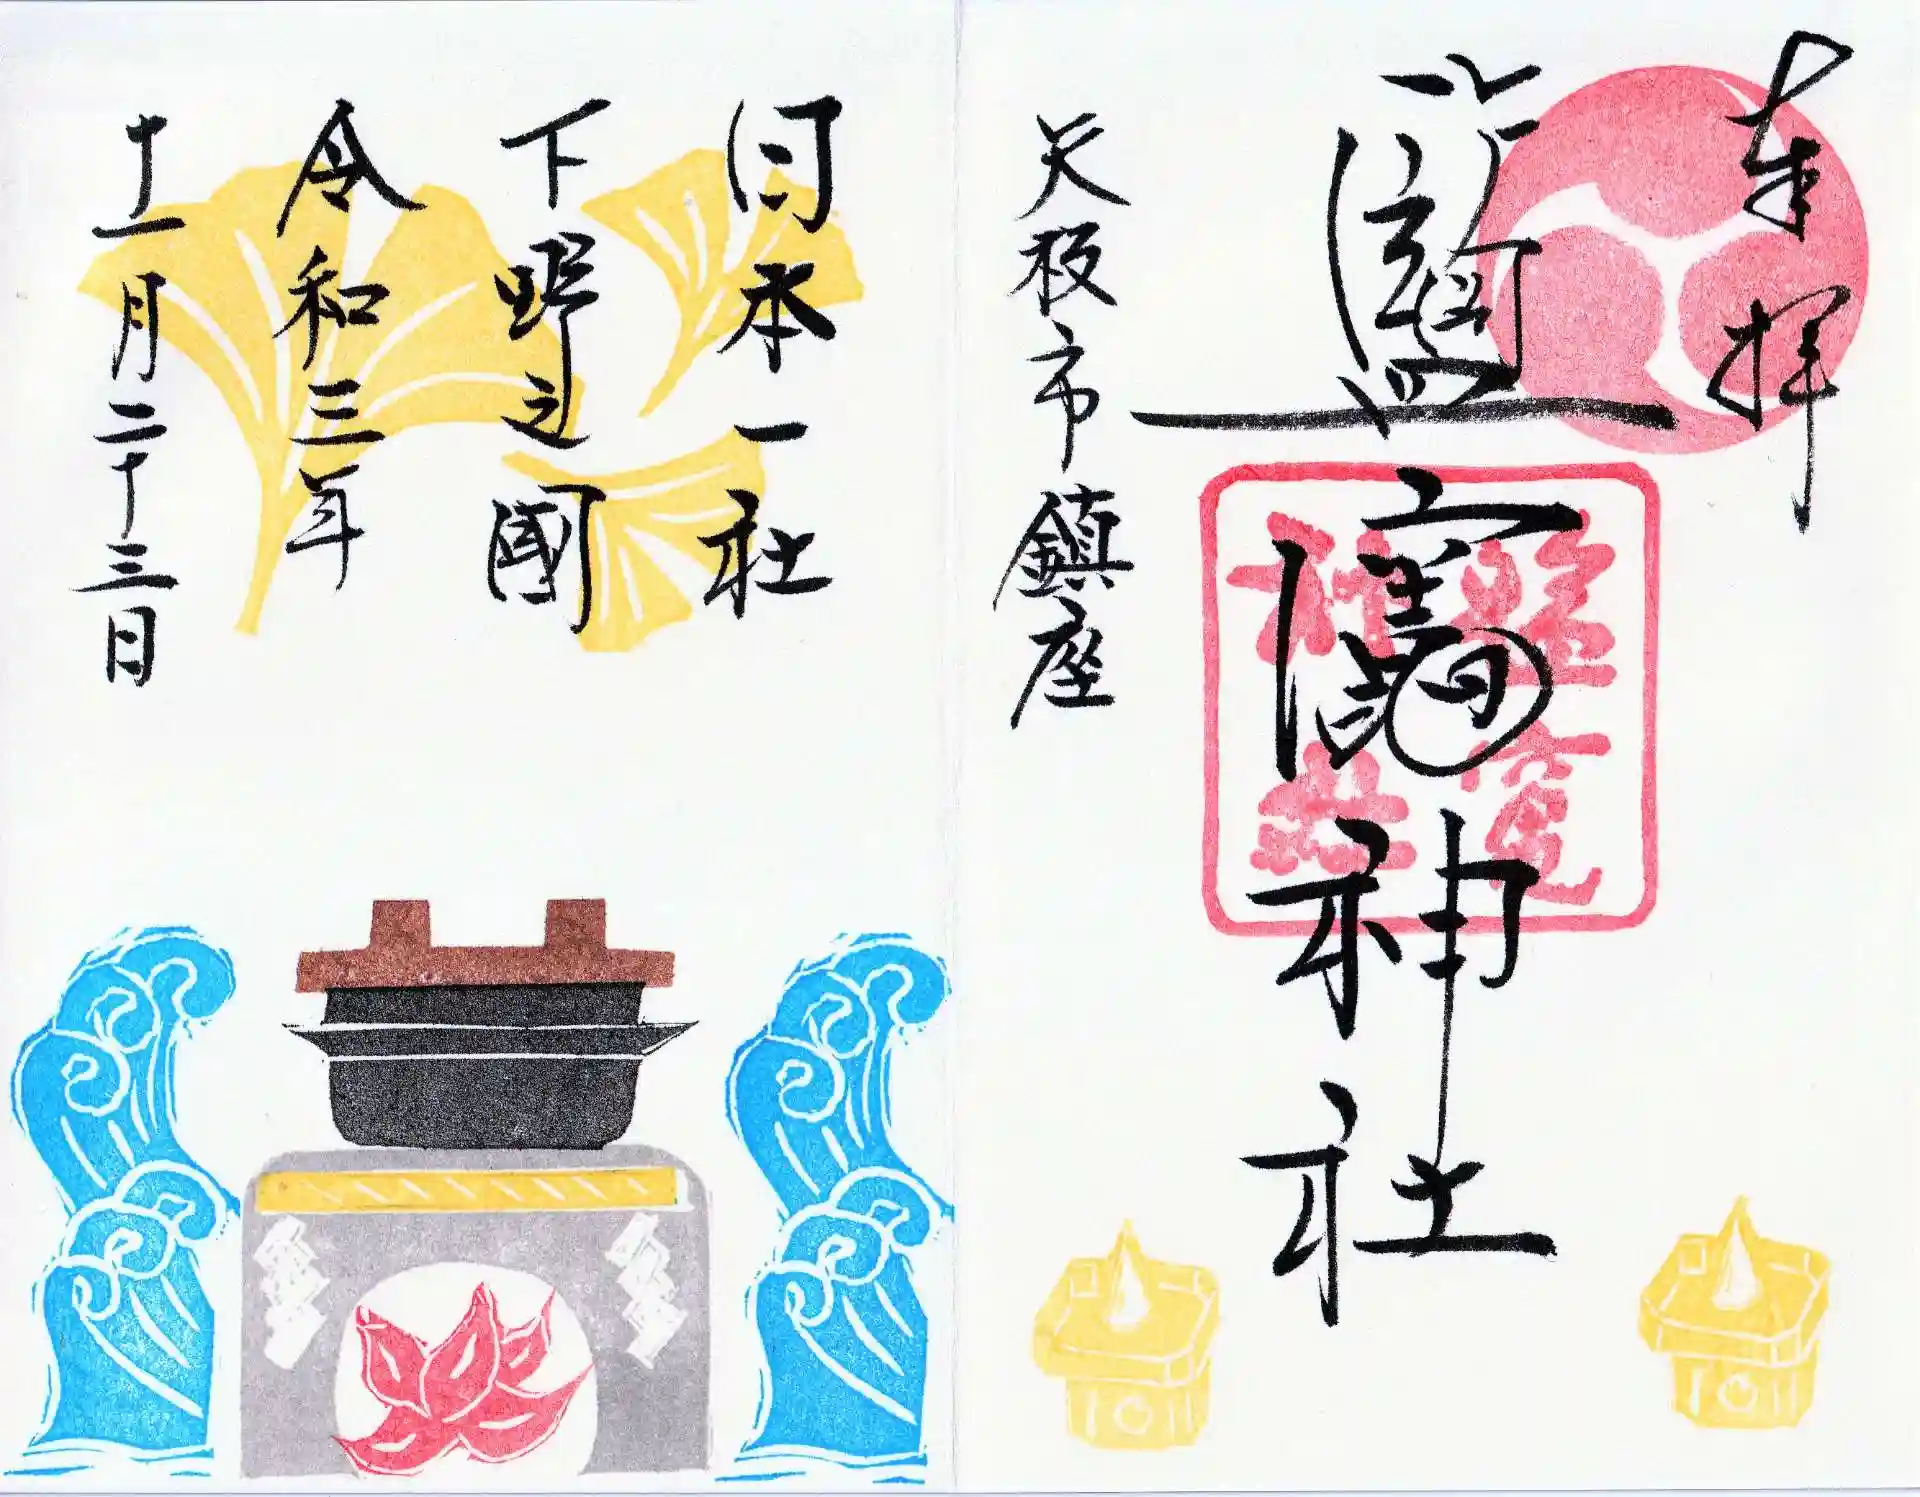 奉拝
鹽竈神社
矢板市鎮座
日本一社
下野之國
令和三年
十一月二十三日